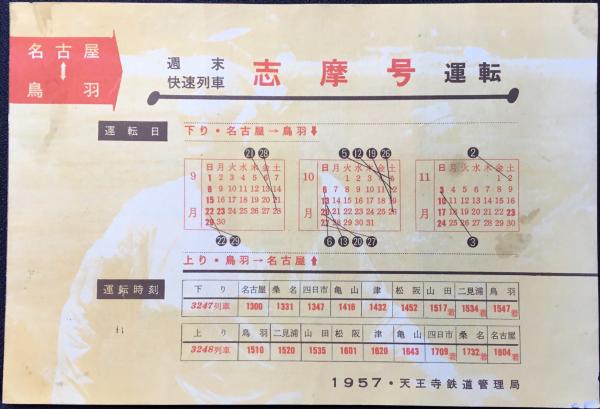 名古屋
⬍
鳥羽
週末
快速列車
志摩号 運転
運転日
下り・名古屋→鳥羽⬇
㉑㉘ ⑤⑫⑲㉖ ②
9月
日月火水木金土
1 2 3 4 5 6 7
8 9 10 11 12 13 14
15 16 17 18 19 20 21
22 23 24 25 26 27 28
29 30
10月
日月火水木金土
1 2 3 4 5
6 7 8 9 10 11 12
13 14 15 16 17 18 19
20 21 22 23 24 25 26
27 28 29 30 31
11月
日月火水木金土
1 2
3 4 5 6 7 8 9
10 11 12 13 14 15 16
17 18 19 20 21 22 23
24 25 26 27 28 29 30
㉒㉙ ⑥⑬⑳㉗ ③
上り・鳥羽→名古屋⬆
運転時刻
下り 名古屋 桑名 四日市 亀山 津 松阪 山田 二見浦 鳥羽
3247列車 1300 1331 1347 1416 1432 1452 1517着 1534着 1547着
上り 鳥羽 二見浦 山田 松阪 津 亀山 四日市 桑名 名古屋
3248列車 1510 1520 1535 1601 1620 1643 1709着 1732着 1804着
1957・天王寺鉄道管理局